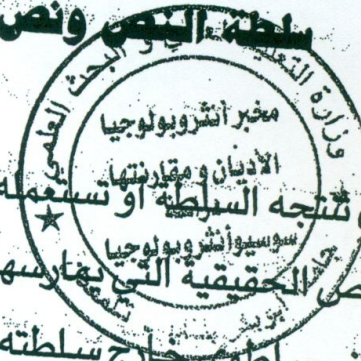 سلطة النص ونص
وزارة التعليم العالي و البحث العلمي
مخبر أنثروبولوجيا
الأديان و مقارنتها
سوسيوأنثروبولوجيا
تنتجه السلطة أو تستعمله
ص الحقيقية التي يمارسها
خارج سلطته